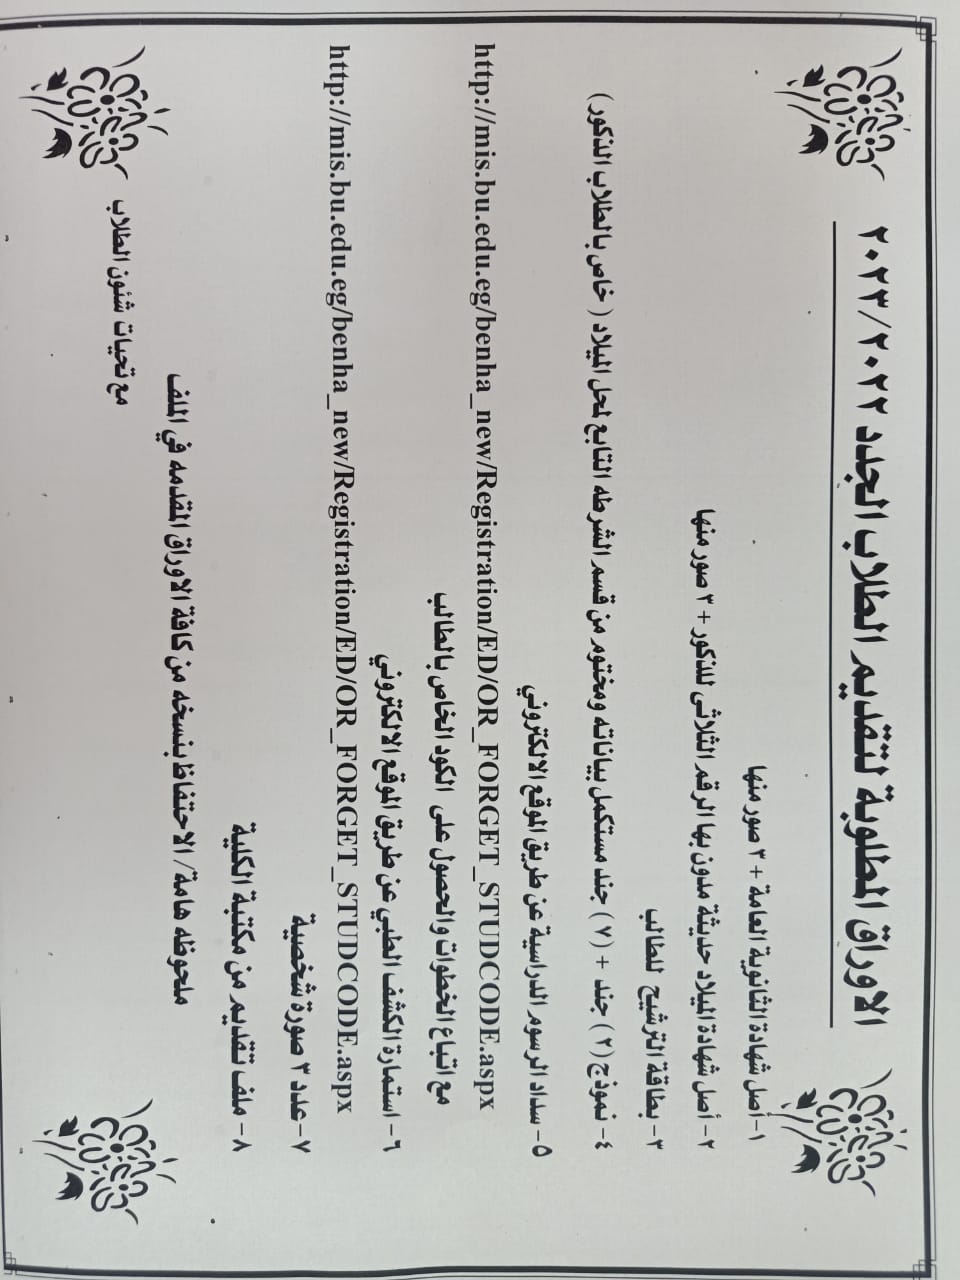 الاوراق المطلوبة لتقديم الطلاب الجدد ٢٠٢٣/٢٠٢٢
١-أصل شهادة الثانوية العامة + ٣ صور منها
٢- أصل شهادة الميلاد حديثة مدون بها الرقم الثلاثى للذكور + ٣ صور منها
٣- بطاقة الترشيح للطالب
٤- نموذج (٢) جند + (٧) جند مستكمل بياناته ومختوم من قسم الشرطه التابع لمحل الميلاد ( خاص بالطلاب الذكور )
٥- سداد الرسوم الدراسية عن طريق الموقع الالكتروني
http://mis.bu.edu.eg/benha_new/Registration/ED/OR_FORGET_STUDCODE.aspx
مع اتباع الخطوات والحصول على الكود الخاص بالطالب
٦- استمارة الكشف الطبي عن طريق الموقع الالكتروني
http://mis.bu.edu.eg/benha_new/Registration/ED/OR_FORGET_STUDCODE.aspx
٧-عدد ٣ صورة شخصية
٨- ملف تقديم من مكتبة الكلية
ملحوظه هامة/ الاحتفاظ بنسخه من كافة الاوراق المقدمه في الملف
مع تحيات شئون الطلاب